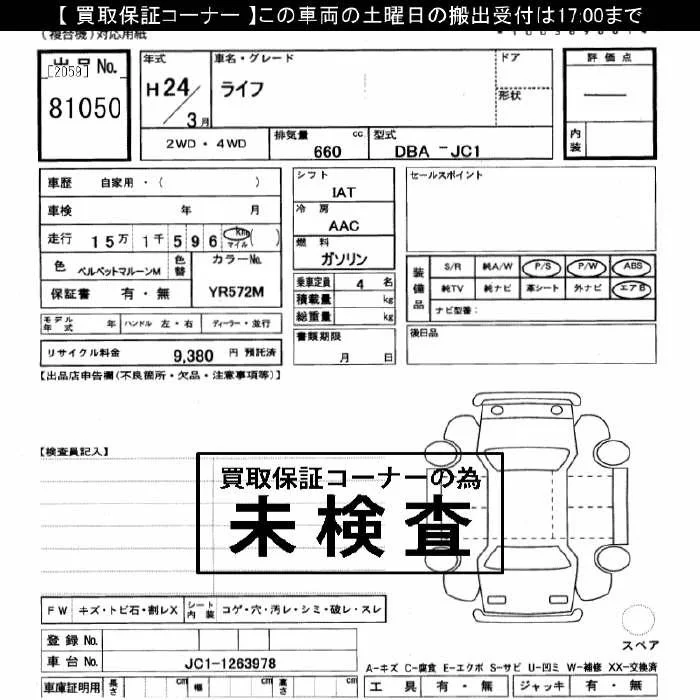 【 買取保証コーナー 】この車両の土曜日の搬出受付は17:00まで
(複合機)対応用紙
出品No.
[2059]
81050
年式
H24/3月
車名・グレード
ライフ
ドア
形状
評価点
内装
2WD・4WD
排気量 cc
660
型式
DBA -JC1
車歴 自家用・( )
車検 年 月
走行 15万1千596 km マイル ( )
色 ベルベットマルーンM
色替
カラーNo.
YR572M
保証書 有・無
モデル年式 年
ハンドル 左・右
ディーラー・並行
リサイクル料金 9,380 円 預託済
シフト
IAT
冷房
AAC
燃料
ガソリン
乗車定員 4 名
積載量 kg
総重量 kg
書類期限
月 日
セールスポイント
装備品
S/R 純A/W P/S P/W ABS
純TV 純ナビ 革シート 外ナビ エアB
ナビ型番:
後日品
【出品店申告欄(不良箇所・欠品・注意事項等)】
【検査員記入】
買取保証コーナーの為
未検査
FW キズ・トビ石・割レX
シート内装 コゲ・穴・汚レ・シミ・破レ・スレ
登録No.
車台No. JC1-1263978
車庫証明用 長さ cm 幅 cm 高さ cm
スペア
A-キズ C-腐食 E-エクボ S-サビ U-凹ミ W-補修 XX-交換済
工具 有・無 ジャッキ 有・無